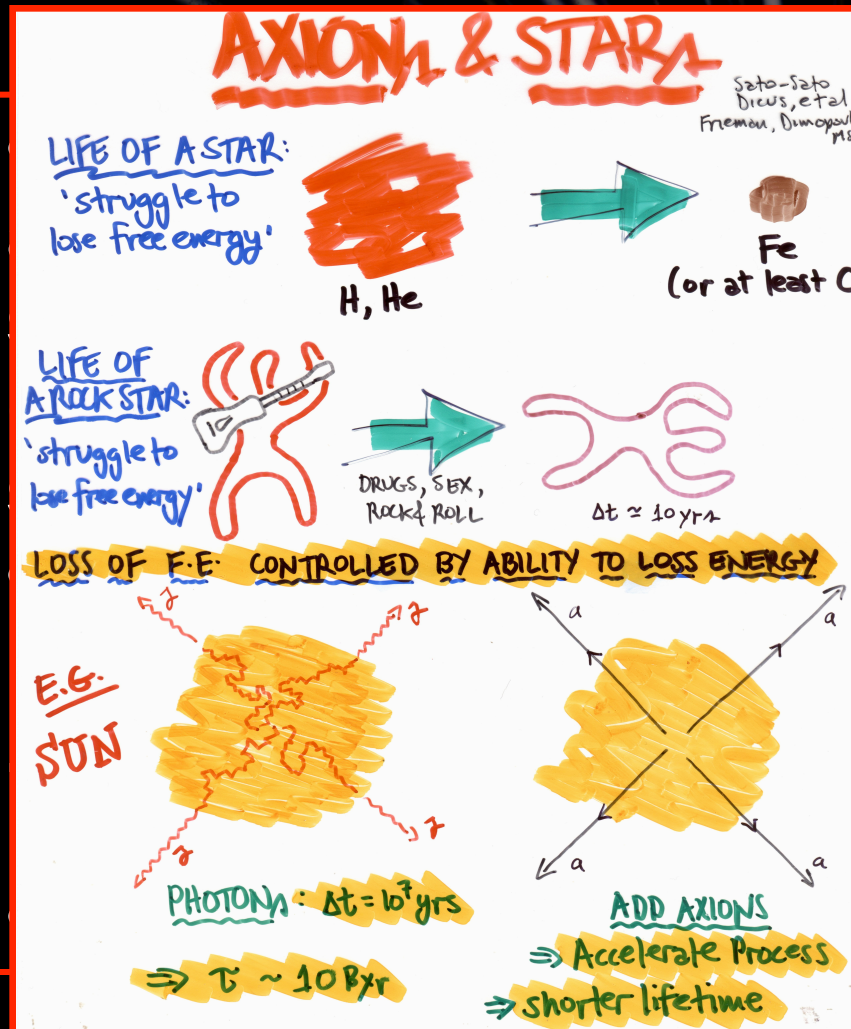 AXIONs & STARs
Sato-Sato
Dicus, et al
Frieman, Dimopoul
MS
LIFE OF A STAR:
'struggle to
lose free energy'
H, He
Fe
(or at least C
LIFE OF
A ROCK STAR:
'struggle to
lose free energy'
DRUGS, SEX,
ROCK & ROLL
Δt ≃ 10 yrs
LOSS OF F.E. CONTROLLED BY ABILITY TO LOSS ENERGY
γ
γ
a
a
E.G.
SUN
γ
γ
a
a
PHOTONs: Δt = 10⁷ yrs
⇒ τ ~ 10 Byr
ADD AXIONS
⇒ Accelerate Process
⇒ shorter lifetime